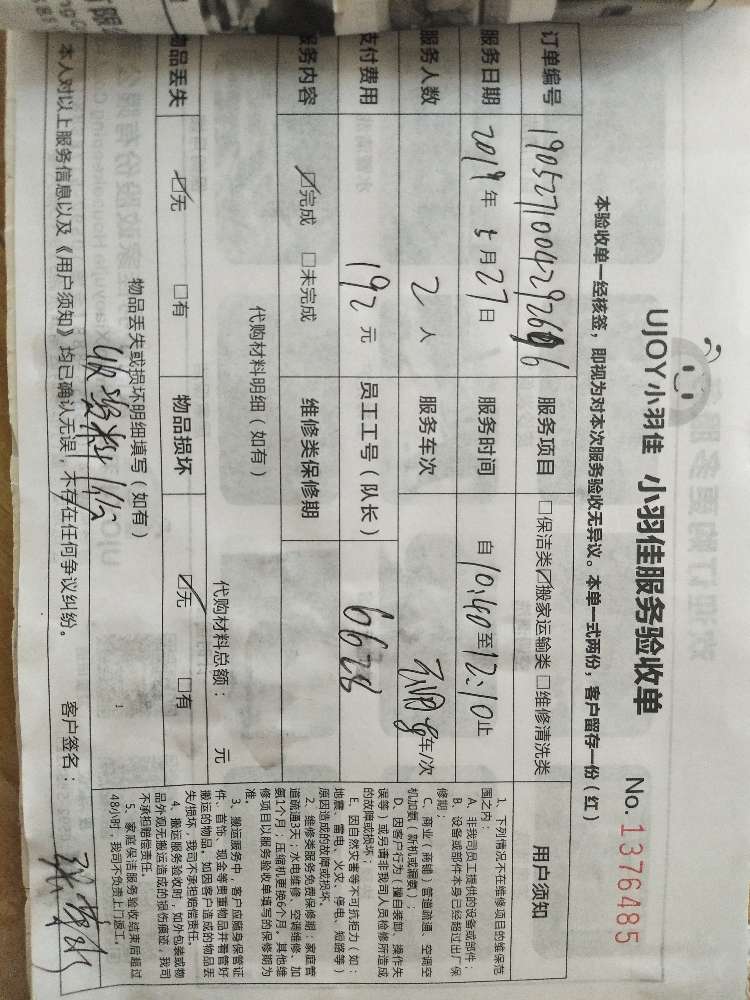 UJOY小羽佳 小羽佳服务验收单 No. 1376485
本验收单一经核签，即视为对本次服务验收无异议。本单一式两份，客户留存一份（红）
订单编号 服务项目 □保洁类☑搬家运输类 □维修清洗类
服务日期 2019年5月27日 服务时间 自10:40至12:10止
服务人数 2人 服务车次 车/次
支付费用 192元 员工工号（队长） 6628
服务内容 ☑完成 □未完成 维修类保修期
代购材料明细（如有） 代购材料总额： 元
物品丢失 ☑无 □有 物品损坏 ☑无 □有
物品丢失或损坏明细填写（如有）
本人对以上服务信息以及《用户须知》均已确认无误，不存在任何争议纠纷。 客户签名：
用户须知
1、下列情况不在维修项目的维保范
围之内：
A、非我司员工提供的设备或部件；
B、设备或部件本身已经超过出厂保
修期；
C、商业（商铺）管道疏通、空调空
机加氨（新机或漏氨）；
D、因客户行为（擅自装卸、操作失
误等）或另请非我司人员检修所造成
的故障或损坏；
E、因自然灾害等不可抗拒力（如：
地震、雷电、火灾、停电、短路等）
原因造成的故障或损坏。
2、维修类服务免费保修期：家庭管
道疏通3天，水电维修、空调维修、加
氨1个月；压缩机更换6个月。其他维
修项目以服务验收单填写的保修期为
准。
3、搬运服务中，客户应随身保管证
件、首饰、现金等贵重物品并看管好
搬运的物品。如因客户造成的物品丢
失/损坏，我司不承担赔偿责任。
4、搬运服务验收时，如外包装或物
品外观无搬运造成的损伤痕迹，我司
不承担赔偿责任。
5、家庭保洁服务验收结束后超过
48小时，我司不负责上门返工。